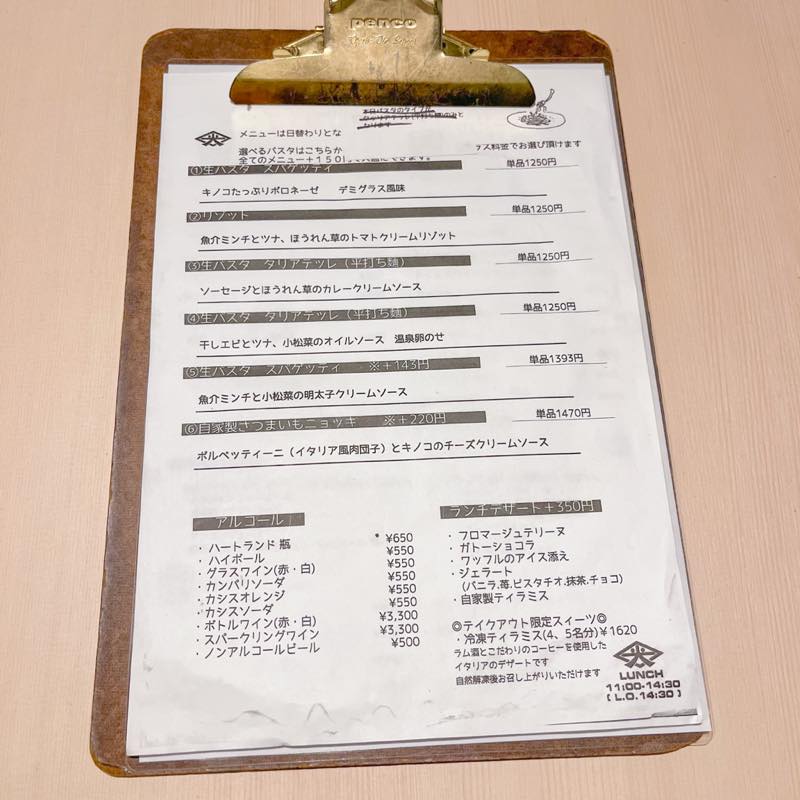 penco
本日パスタのタイプが
メニューは日替わりとな
選べるパスタはこちらか
ス料金でお選び頂けます
全てのメニュー+150
①生パスタ スパゲッティ 単品1250円
キノコたっぷりボロネーゼ デミグラス風味
②リゾット 単品1250円
魚介ミンチとツナ、ほうれん草のトマトクリームリゾット
③生パスタ タリアテッレ(平打ち麺) 単品1250円
ソーセージとほうれん草のカレークリームソース
④生パスタ タリアテッレ(平打ち麺) 単品1250円
干しエビとツナ、小松菜のオイルソース 温泉卵のせ
⑤生パスタ スパゲッティ ※+143円 単品1393円
魚介ミンチと小松菜の明太子クリームソース
⑥自家製さつまいもニョッキ ※+220円 単品1470円
ポルペッティーニ(イタリア風肉団子)とキノコのチーズクリームソース
アルコール
・ハートランド 瓶 ¥650
・ハイボール ¥550
・グラスワイン(赤・白) ¥550
・カンパリソーダ ¥550
・カシスオレンジ ¥550
・カシスソーダ ¥550
・ボトルワイン(赤・白) ¥3,300
・スパークリングワイン ¥3,300
・ノンアルコールビール ¥500
ランチデザート+350円
・フロマージュテリーヌ
・ガトーショコラ
・ワッフルのアイス添え
・ジェラート
(バニラ.苺.ピスタチオ.抹茶.チョコ)
・自家製ティラミス
◎テイクアウト限定スィーツ◎
・冷凍ティラミス(4、5名分)¥1620
ラム酒とこだわりのコーヒーを使用した
イタリアのデザートです
自然解凍後お召し上がりいただけます
LUNCH
11:00-14:30
[L.O.14:30]